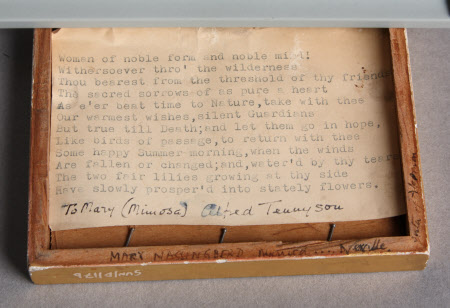 Woman of noble form and noble mind!
Withersoever thro' the wilderness
Thou bearest from the threshold of thy friends
The sacred sorrows of as pure a heart
As e'er beat time to Nature,take with thee
Our warmest wishes,silent Guardians
But true till Death;and let them go in hope,
Like birds of passage,to return with thee
Some happy Summer morning,when the winds
Are fallen or changed;and,water'd by thy tears
The two fair lilies growing at thy side
Have slowly prosper'd into stately flowers.
To Mary (Mimosa) Alfred Tennyson
MARY